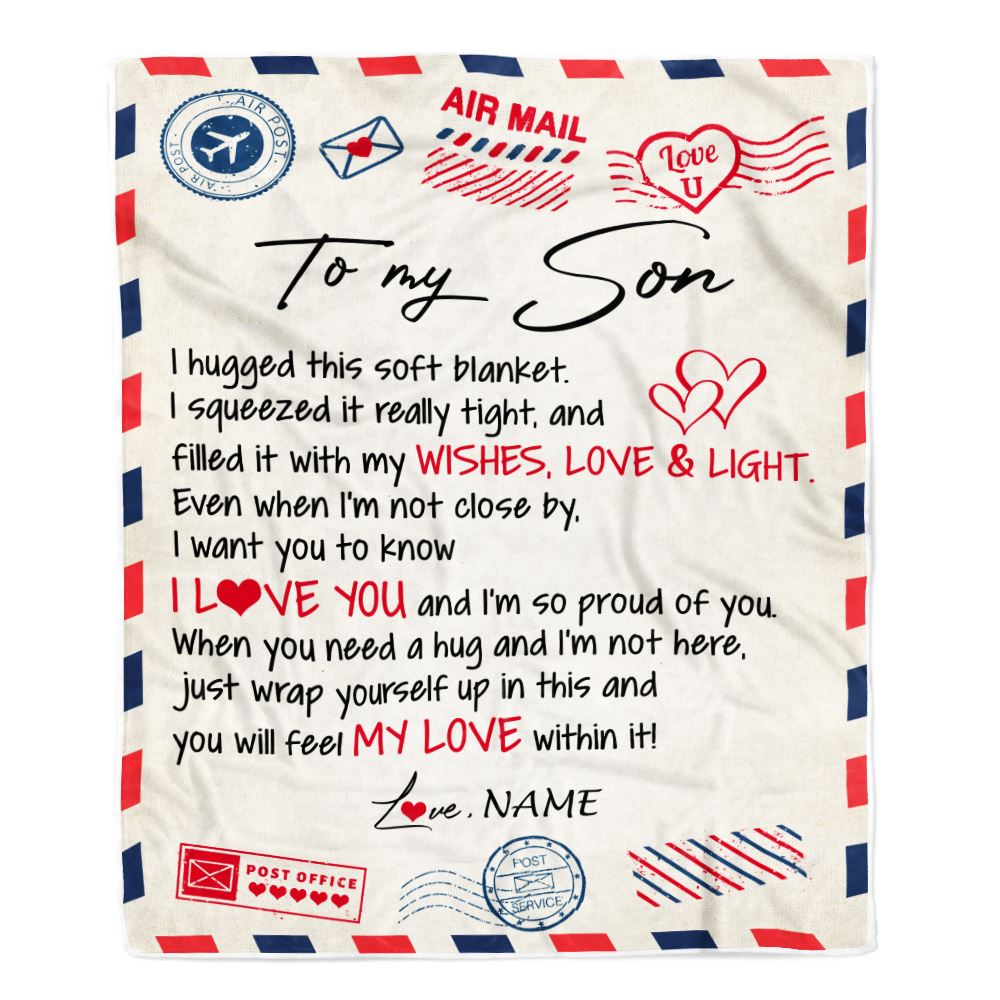 AIR POST
AIR POST
AIR MAIL
Love
U
To my Son
I hugged this soft blanket.
I squeezed it really tight, and
filled it with my WISHES, LOVE & LIGHT.
Even when I'm not close by,
I want you to know
I L❤VE YOU and I'm so proud of you.
When you need a hug and I'm not here,
just wrap yourself up in this and
you will feel MY LOVE within it!
L❤ve, NAME
POST OFFICE
POST
SERVICE